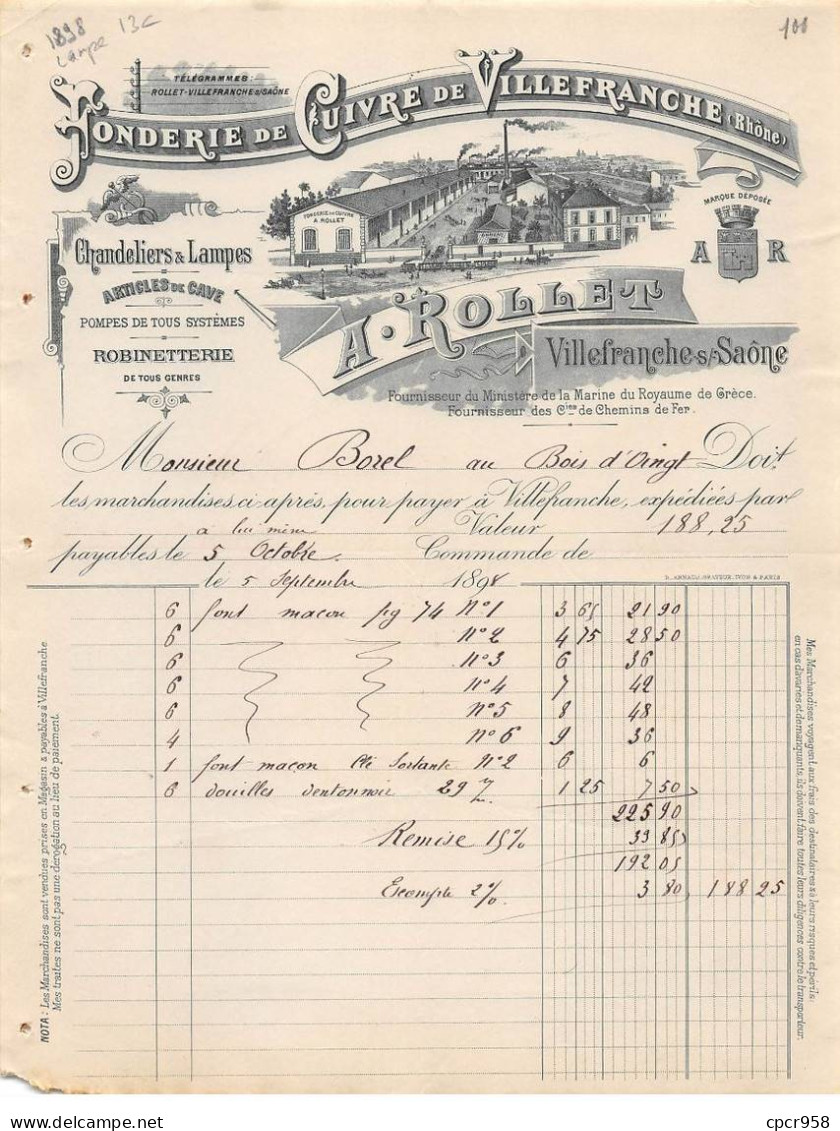 1898
Lampe 13c
100
TÉLÉGRAMMES:
ROLLET-VILLEFRANCHE S/SAÔNE
FONDERIE DE CUIVRE DE VILLEFRANCHE (Rhône)
FONDERIE DE CUIVRE
A. ROLLET
MARQUE DÉPOSÉE
A R
Chandeliers & Lampes
ARTICLES DE CAVE
POMPES DE TOUS SYSTÈMES
ROBINETTERIE
DE TOUS GENRES
A. ROLLET
Villefranche-s/-Saône
Fournisseur du Ministère de la Marine du Royaume de Grèce.
Fournisseur des Cies de Chemins de Fer.
Monsieur Borel au Bois d'Oingt Doit
les marchandises ci après, pour payer à Villefranche, expédiées par
à lui même Valeur 188,25
payables le 5 Octobre. Commande de
le 5 Septembre 1898
D. ARNAUD, GRAVEUR, LYON & PARIS
6 font macon pg 74 N°1 3 65 21 90
6 N°2 4 75 28 50
6 N°3 6 36
6 N°4 7 42
6 N°5 8 48
4 N°6 9 36
1 font macon Clé Sortante N°2 6 6
6 douilles dentonnoir 29 1 25 7 50
225 90
Remise 15% 33 85
192 05
Escompte 2% 3 80 188 25
NOTA : Les Marchandises sont vendues prises en Magasin & payables à Villefranche
Mes traites ne sont pas une dérogation au lieu de paiement.
Mes Marchandises voyagent aux frais des destinataires & à leurs risques et périls:
en cas d'avaries et de manquants, ils doivent faire toutes leurs diligences contre le transporteur.
cpcr958